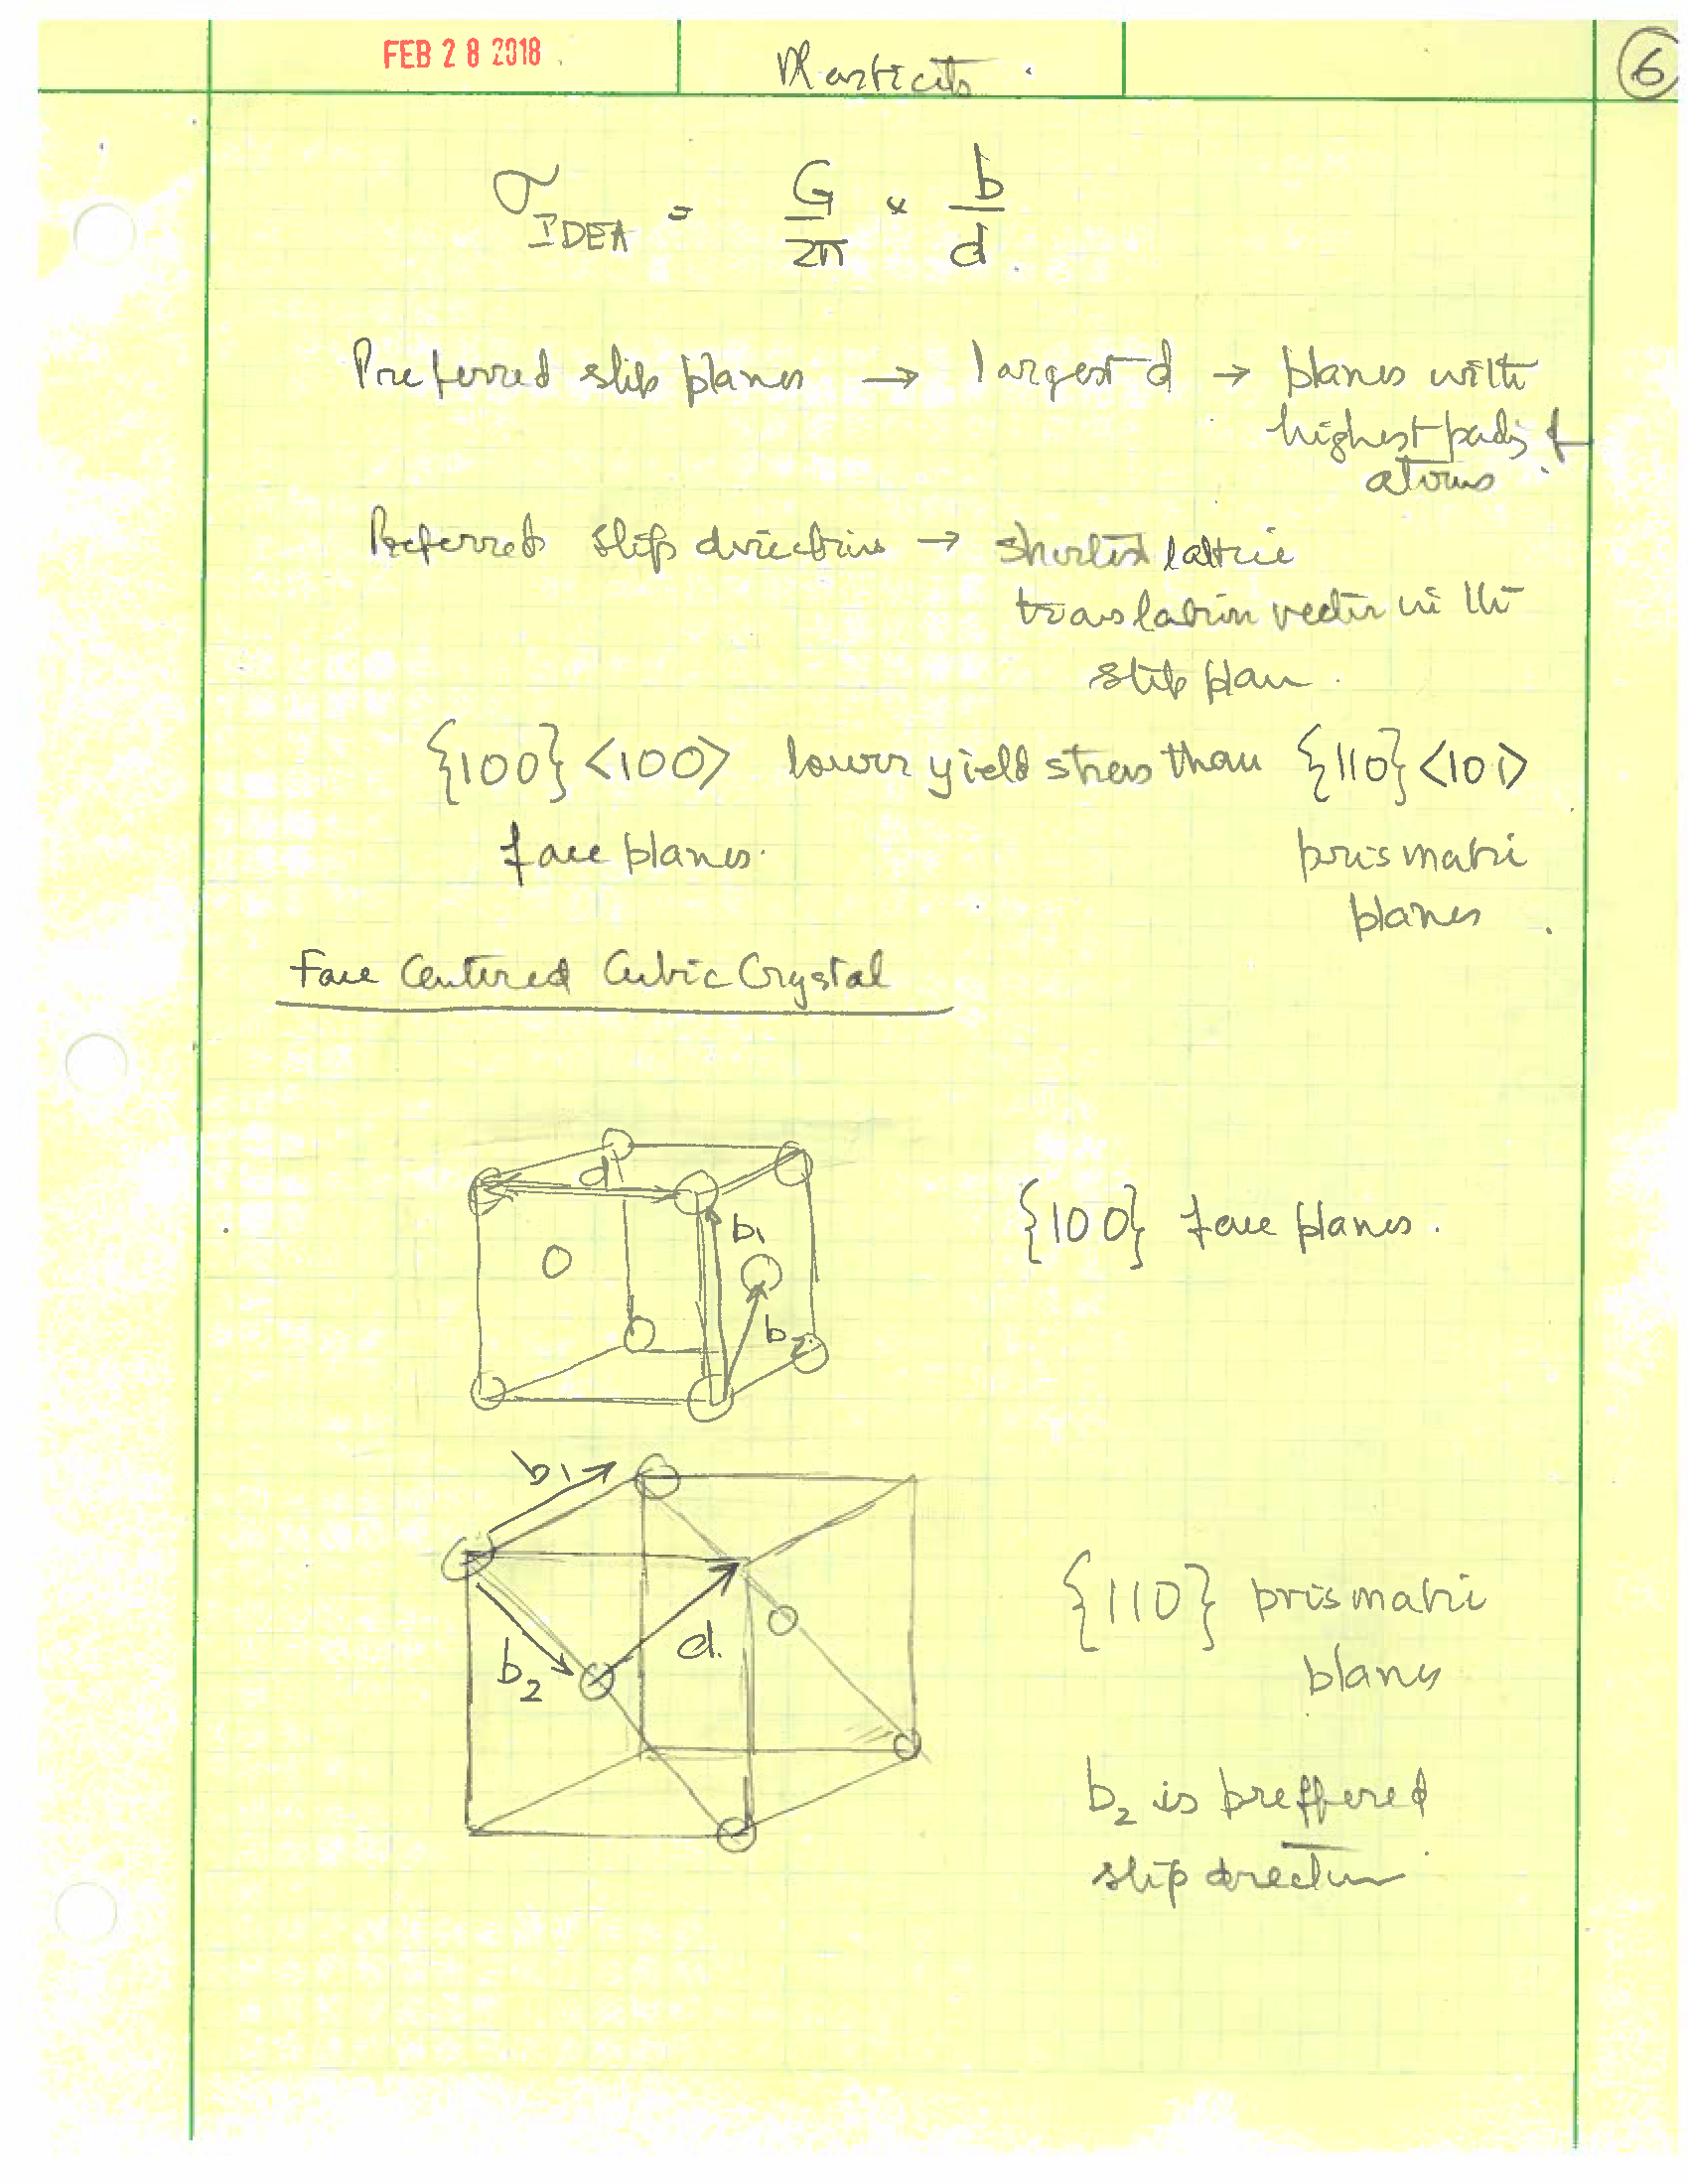 FEB 28 2018
Plasticity
6
σ IDEA = G/2π × b/d
Preferred slip planes → largest d → planes with
highest
atoms.
Preferred slip directions → shortest lattice
translation vector in the
slip plan.
{100} <100> lower yield stress than {110} <101>
face planes.
prismatic
planes.
Face Centered Cubic Crystal
d
b1
b2
{100} face planes.
b1
b2
d.
{110} prismatic
planes
b2 is preffered
slip direction